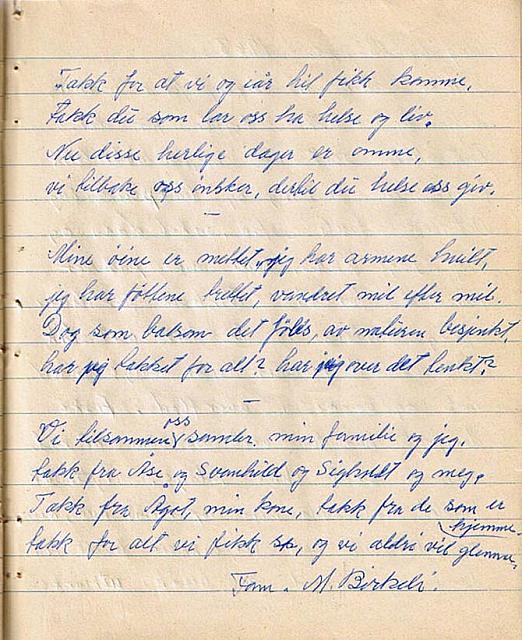 Takk for at vi og iår hit fikk komme,
Takk du som lar oss ha helse og liv.
Nu disse herlige dager er omme,
vi tilbake oss ønsker, dertil du helse oss giv.
—
Mine öine er mettet, jeg har armene hvilt,
jeg har föttene trettet, vandret mil efter mil.
Dog som balsom det föles, av naturen besjenkt,
har jeg takket for alt? har jeg over det tenkt?
—
Vi tilsammen oss samler, min familie og jeg,
takk fra Åse, og Svanhild og Sigholdt og meg,
Takk fra Ågot, min kone, takk fra de som er hjemme,
takk for alt vi fikk se, og vi aldri vil glemme.
Fam. M. Birkeli.